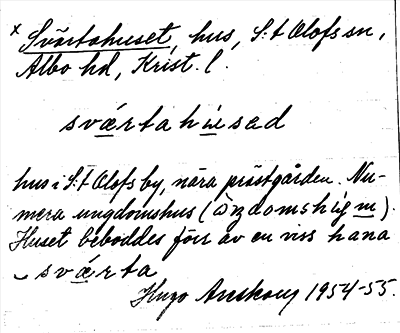 x Svärtahuset, hus, S:t Olofs sn,
Albo hd, Krist. l.
sværtahu̇sed
hus i S:t Olofs by, nära prästgården. Nu-
mera ungdomshus (
Huset beboddes förr av en viss hana
sværta
Hugo Areskoug 1954-55.